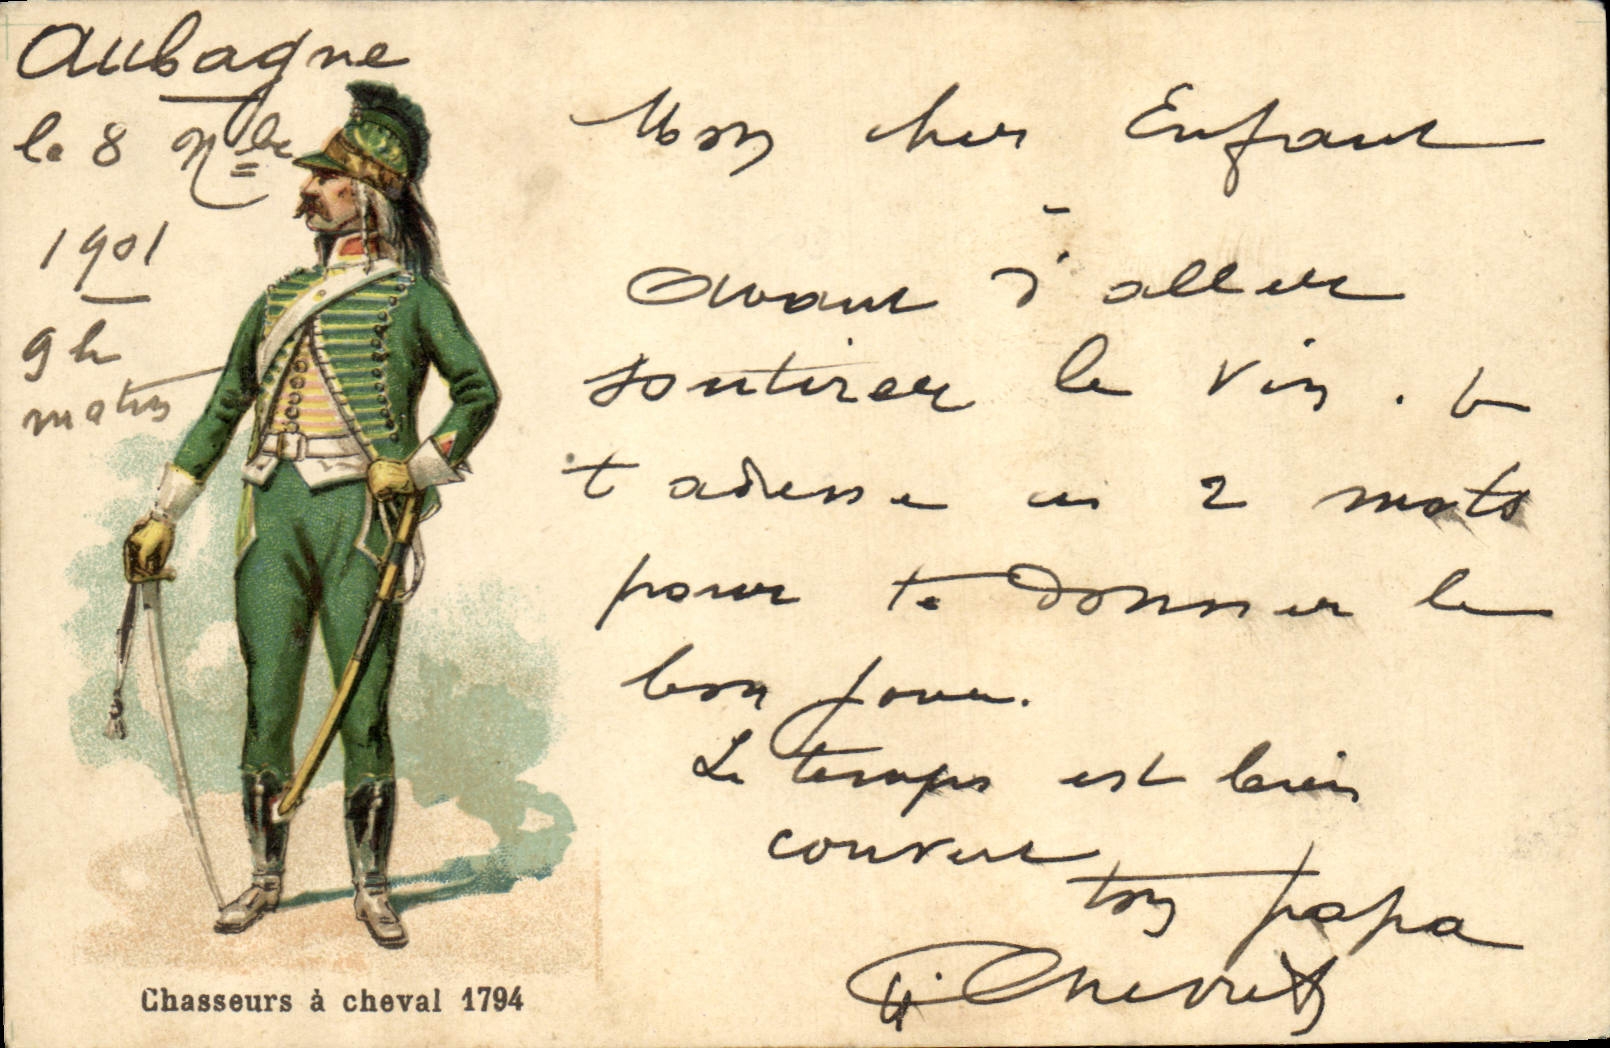 Aubagne
le 8 Nbre
1901
9 h
matin
Mon cher Enfant
Avant d'aller
soutirer le vin. Je
t'adresse ces 2 mots
pour te donner le
bon jour.
Le temps est bien
couvert
ton papa
Chevret
Chasseurs à cheval 1794